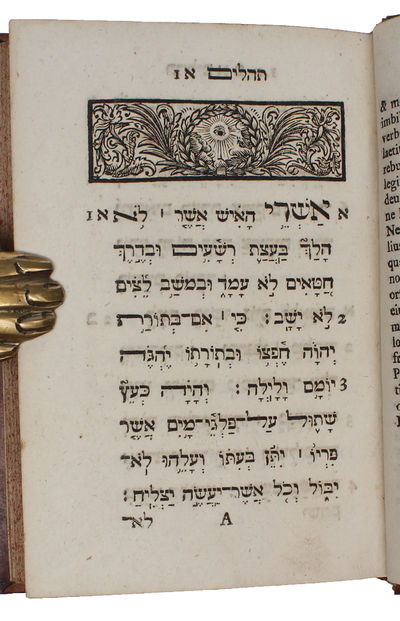 תהלים א 1
א אַשְׁרֵי הָאִישׁ אֲשֶׁר ׀ לֹא א 1
הָלַךְ בַּעֲצַת רְשָׁעִים וּבְדֶרֶךְ
חַטָּאִים לֹא עָמָד וּבְמֹשַׁב לֵצִים
לֹא יָשָׁב׃ כִּי אִם־בְּתוֹרַת 2
יְהוָֹה חֶפְצוֹ וּבְתוֹרָתוֹ יֶהְגֶּה
יוֹמָם וָלָיְלָה׃ וְהָיָה כְּעֵץ 3
שָׁתוּל עַל־פַּלְגֵי־מָיִם אֲשֶׁר
פִּרְיוֹ ׀ יִתֵּן בְּעִתּוֹ וְעָלֵהוּ לֹא־
יִבּוֹל וְכֹל אֲשֶׁר־יַעֲשֶׂה יַצְלִיחַ׃
A לֹא־
& m
imbi
verb
laetit
rebu
legi
deu
ne
Ne
lius
qua
no
ori
eiu
m
lo
fr
P
ti
d